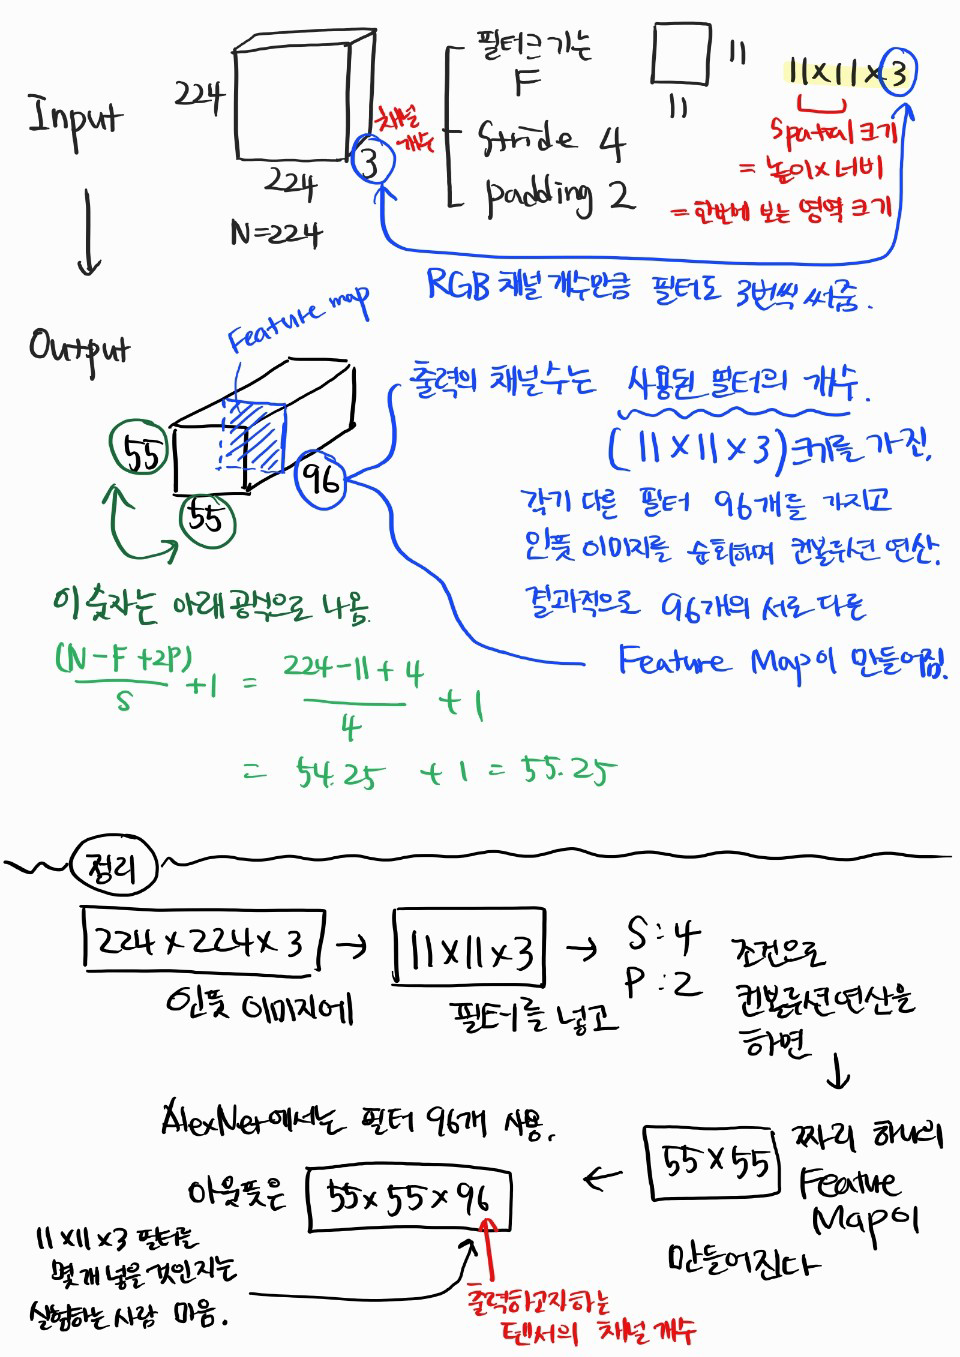 Input
224
224
3
채널
개수
N=224
필터크기는
F
Stride 4
padding 2
11
11
11×11×3
Spatial 크기
= 높이×너비
= 한번에 보는 영역 크기
RGB 채널 개수만큼 필터도 3번씩 써줌.
Output
Feature map
55
55
96
출력의 채널수는 사용된 필터의 개수.
(11×11×3)크기를 가진,
각기 다른 필터 96개를 가지고
인풋 이미지를 순회하며 컨볼루션 연산.
결과적으로 96개의 서로 다른
Feature Map이 만들어짐.
이 숫자는 아래 공식으로 나옴.
(N-F+2P)/S +1 = (224-11+4)/4 +1
= 54.25 +1 = 55.25
정리
224×224×3 → 11×11×3 → S:4
P:2
인풋 이미지에
필터를 넣고
조건으로
컨볼루션 연산을
하면
↓
55×55 짜리 하나의
Feature
Map이
만들어진다
←
AlexNet에서는 필터 96개 사용.
아웃풋은 55×55×96
11×11×3 필터를
몇개 넣을 것인지는
실험하는 사람 마음.
출력하고자하는
텐서의 채널 개수